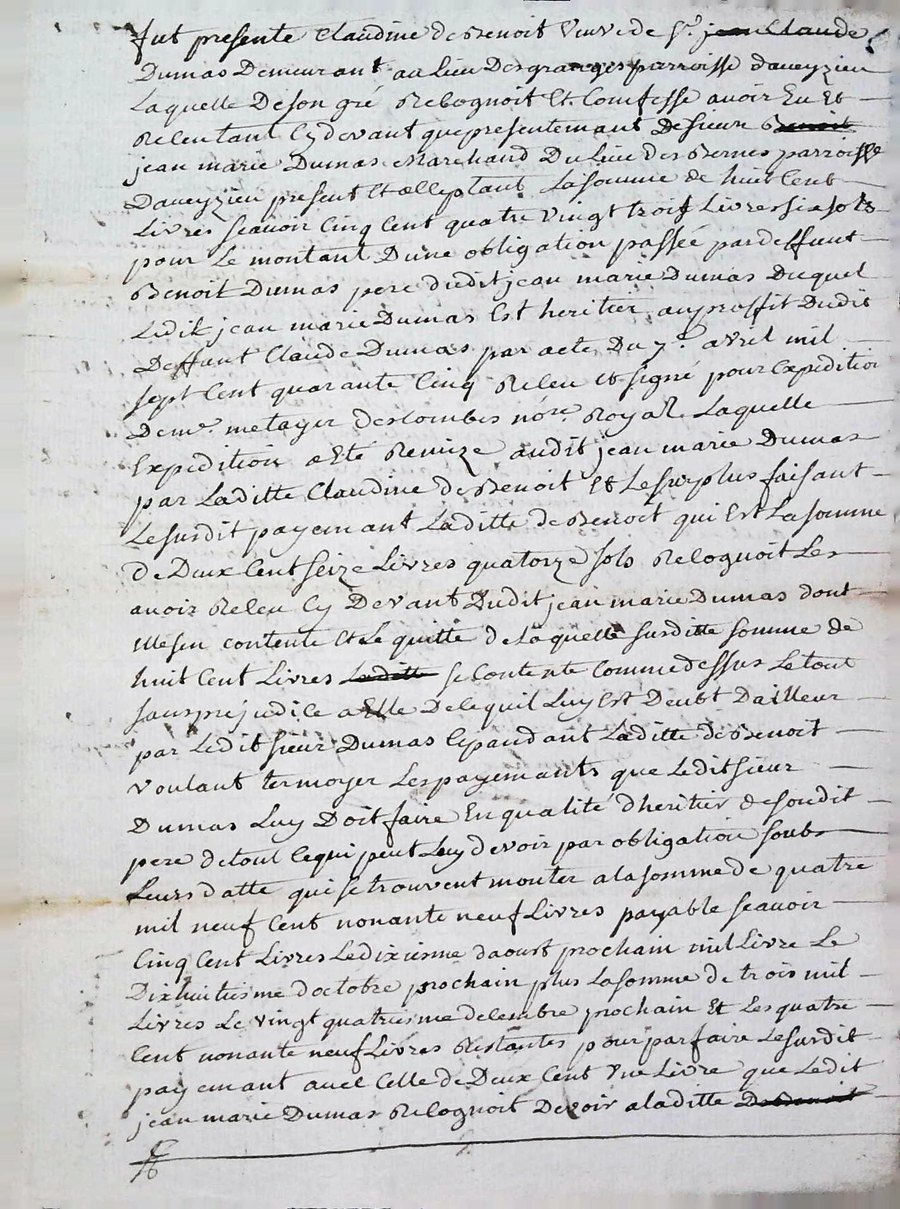 fut presente Claudine de Benoit Veuve de Sr. jean Claude
Dumas Demeurant au Lieu Des granges parroisse daveyzieu
Laquelle De son gré Recognoit Et Comfesse avoir Eu Et
Receu tant Cy devant que presentemant de sieur Benoit
jean marie Dumas Marchand Du Lieu des Bernes parroisse
Daveyzieu present Et acceptant La somme de huit Cent
Livres seavoir Cinq Cent quatre vingt trois Livres six sols
pour Le montant D'une obligation passée par deffunt
Benoit Dumas pere dudit jean marie Dumas Duquel
Ledit jean marie Dumas Est heritier au proffit Dudit
Deffunt Claude Dumas par acte Du 7e. avril mil
sept Cent quarante Cinq Receu et signé pour Expeditio
Deme. metayer descombes nore Royal Laquelle
Expedition a Eté Remize audit jean marie Dumas
par Laditte Claudine de Benoit Et Le surplus faisant
Le susdit payemant Laditte de Benoit qui Est La somme
de Deux Cent seize Livres quatorze sols Recognoit Les
avoir Receu Cy Devant Dudit jean marie Dumas dont
Elle sen contente Et Le quitte de Laquelle susditte somme de
huit Cent Livres Laditte se Contente Comme dessus Le tout
sans prejudice a Elle De ce quil Luy Est Deubt Dailleur
par Ledit sieur Dumas Cepandant Laditte de Benoit
voulant termoyer Les payemants que Ledit sieur
Dumas Luy Doit faire En qualité d'heritier de sondit
pere de tout Ce qui peut Luy devoir par obligation soubs
Leurs datte qui se trouvent monter a La somme de quatre
mil neuf Cent nonante neuf Livres payable seavoir
Cinq Cent Livres Le dixiesme daoust prochain mil Livre Le
Dixhuitiesme doctobre prochain plus La somme de trois mil
Livres Le vingt quatriesme decembre prochain Et Les quatre
Cent nonante neuf Livres Restantes pour parfaire Le susdit
payemant avec Celle de Deux Cent Une Livre que Ledit
jean marie Dumas Recognoit Devoir a Laditte De Benoit